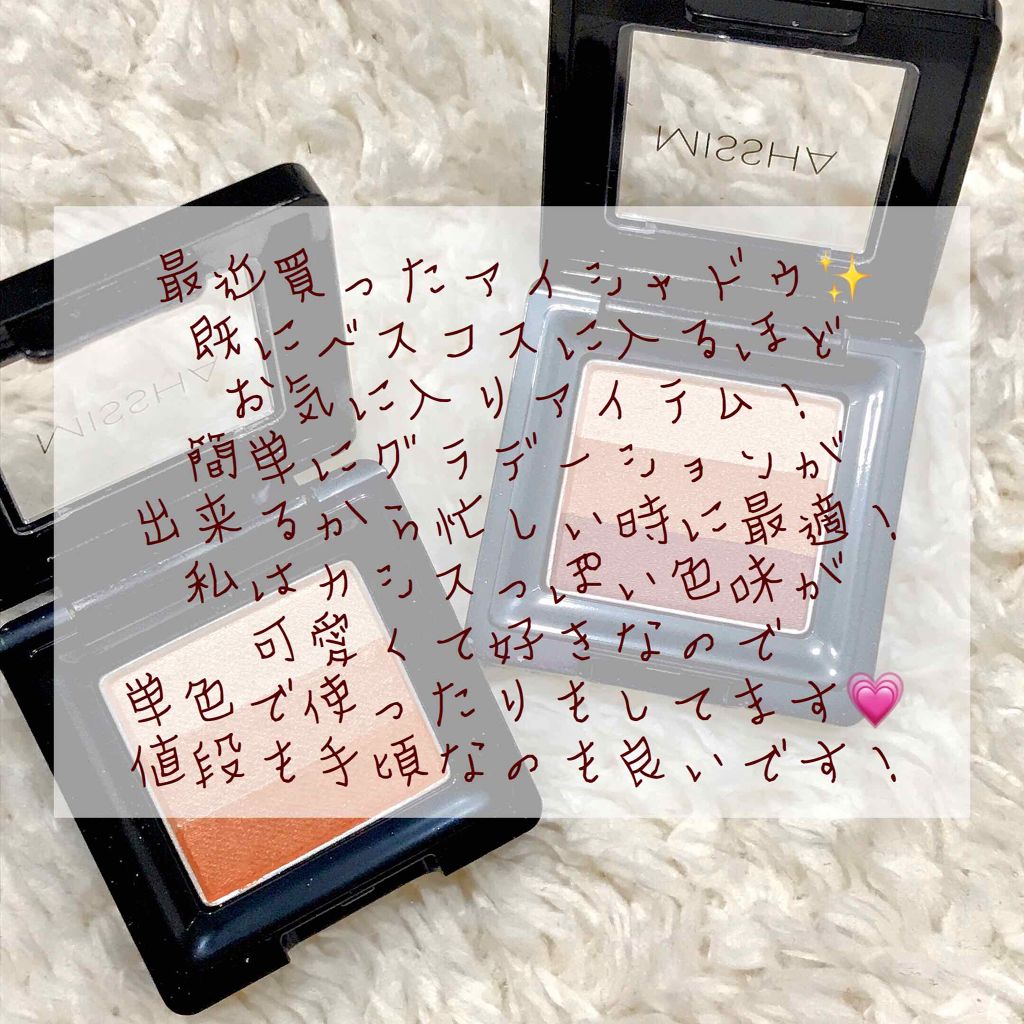 MISSHA
MISSHA
最近買ったアイシャドウ✨
既にベスコスに入るほど
お気に入りアイテム！
簡単にグラデーションが
出来るから忙しい時に最適！
私はカシスっぽい色味が
可愛くて好きなので
単色で使ったりもしてます💗
値段も手頃なのも良いです！